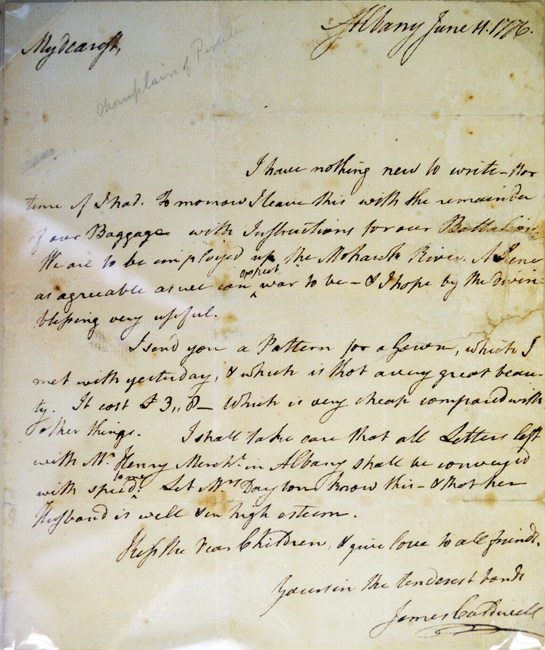 Albany June 11. 1776.
My dearest,
Champlain of
I have nothing new to write – Nor
time if I had. To morrow I leave this with the remainder
of our Baggage with Instructions for our Battalion.
We are to be employed up the Mohawk River. A Scene
as agreeable as we can expect war to be – & I hope by the divine
blessing very useful.
I send you a Pattern for a Gown, which I
met with yesterday, & which is thot a very great beau-
ty. It cost £ 3,,8 – Which is very cheap compared with
other things. I shall take care that all Letters left
with Mr. Henry Mercht. in Albany shall be conveyed
to me with speed. Let Mrs Dayton know this – & that her
Husband is well & in high esteem.
Kiss the Dear Children, & give love to all friends.
Yours in the tenderest bonds
James Caldwell